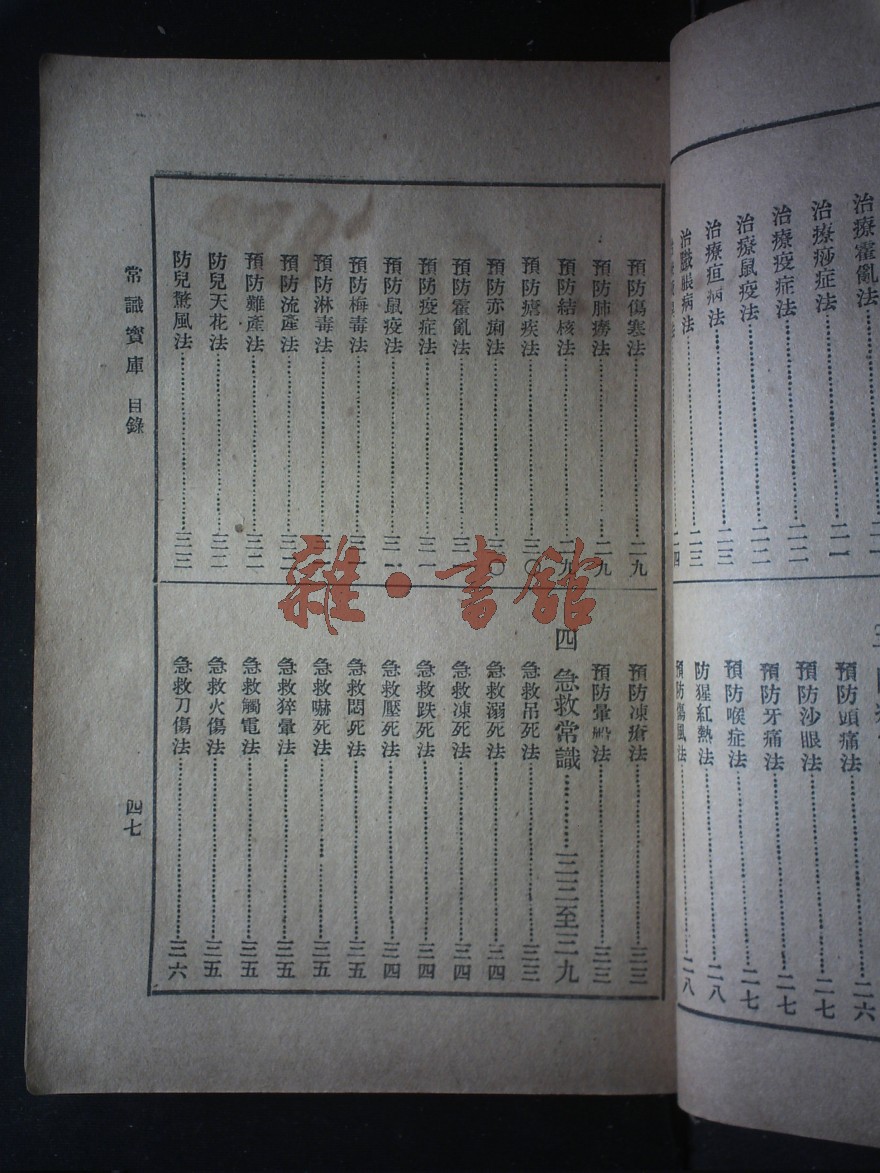 治療霍亂法
治療痧症法…………二一
治療疫症法…………二二
治療鼠疫法…………二二
治療疽病法…………二三
治臌脹病法…………二三
二四
預防頭痛法…………二六
預防沙眼法…………二七
預防牙痛法…………二七
預防喉症法…………二七
防猩紅熱法…………二八
預防傷風法…………二八
預防傷寒法…………二九
預防肺癆法…………二九
預防結核法…………二九
預防瘧疾法…………三〇
預防赤痢法…………三〇
預防霍亂法…………三一
預防疫症法…………三一
預防鼠疫法…………三一
預防梅毒法…………
預防淋毒法…………
預防流產法…………
預防難產法…………三二
防兒天花法…………三二
防兒驚風法…………三三
預防凍瘡法…………三三
預防暈船法…………三三
四 急救常識…………三三至三九
急救吊死法…………三三
急救溺死法…………三四
急救凍死法…………三四
急救跌死法…………三四
急救壓死法…………三四
急救悶死法…………三五
急救嚇死法…………三五
急救猝暈法…………三五
急救觸電法…………三五
急救火傷法…………三五
急救刀傷法…………三六
常識寶庫 目錄
四七
雜·書館